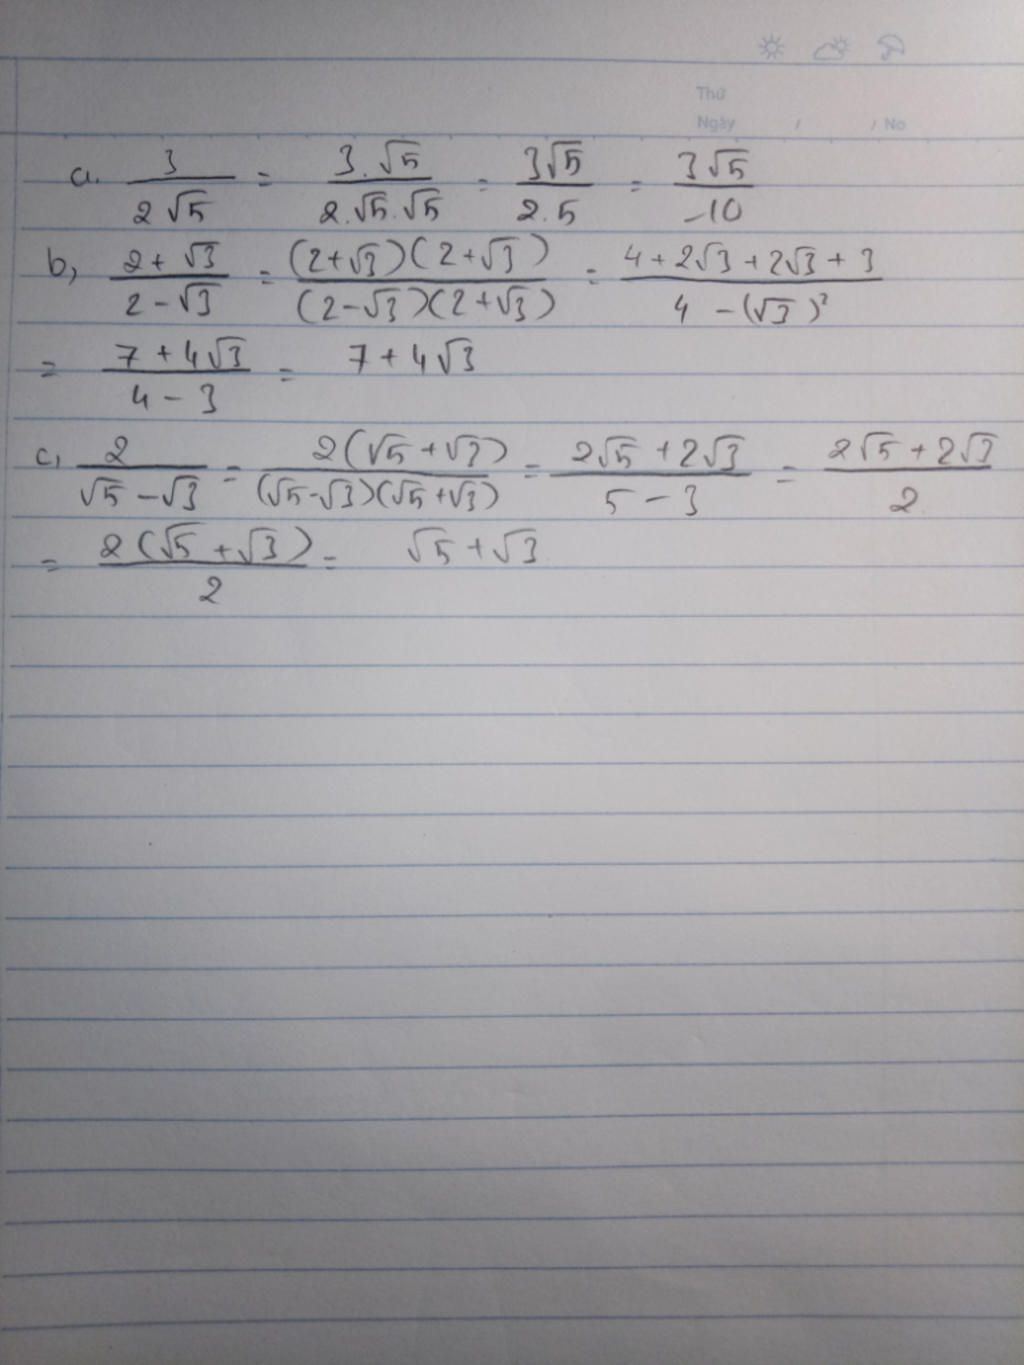 Thứ
Ngày / / No
a. 3/(2√5) = (3.√5)/(2.√5.√5) = 3√5/(2.5) = 3√5/-10
b, (2+√3)/(2-√3) = (2+√3)(2+√3)/(2-√3)(2+√3) = (4+2√3+2√3+3)/(4-(√3)²)
= (7+4√3)/(4-3) = 7+4√3
c, 2/(√5-√3) = 2(√5+√3)/(√5-√3)(√5+√3) = (2√5+2√3)/(5-3) = (2√5+2√3)/2
= 2(√5+√3)/2 = √5+√3